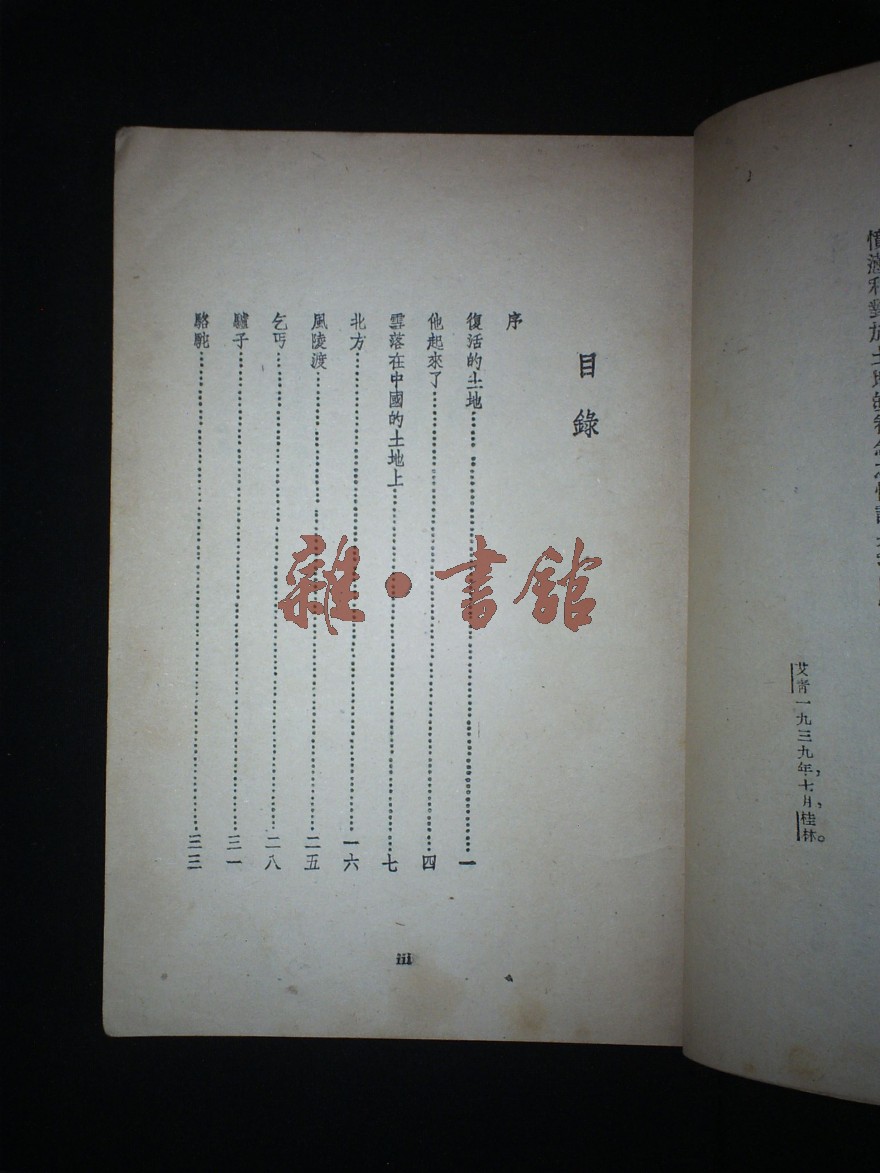 憤懣和對於土地
艾青一九三九年，七月，桂林。
目錄
序
復活的土地……一
他起來了……四
雪落在中國的土地上……七
北方……一六
風陵渡……二五
乞丐……二八
驢子……三一
駱駝……三三
iii
雜·書館